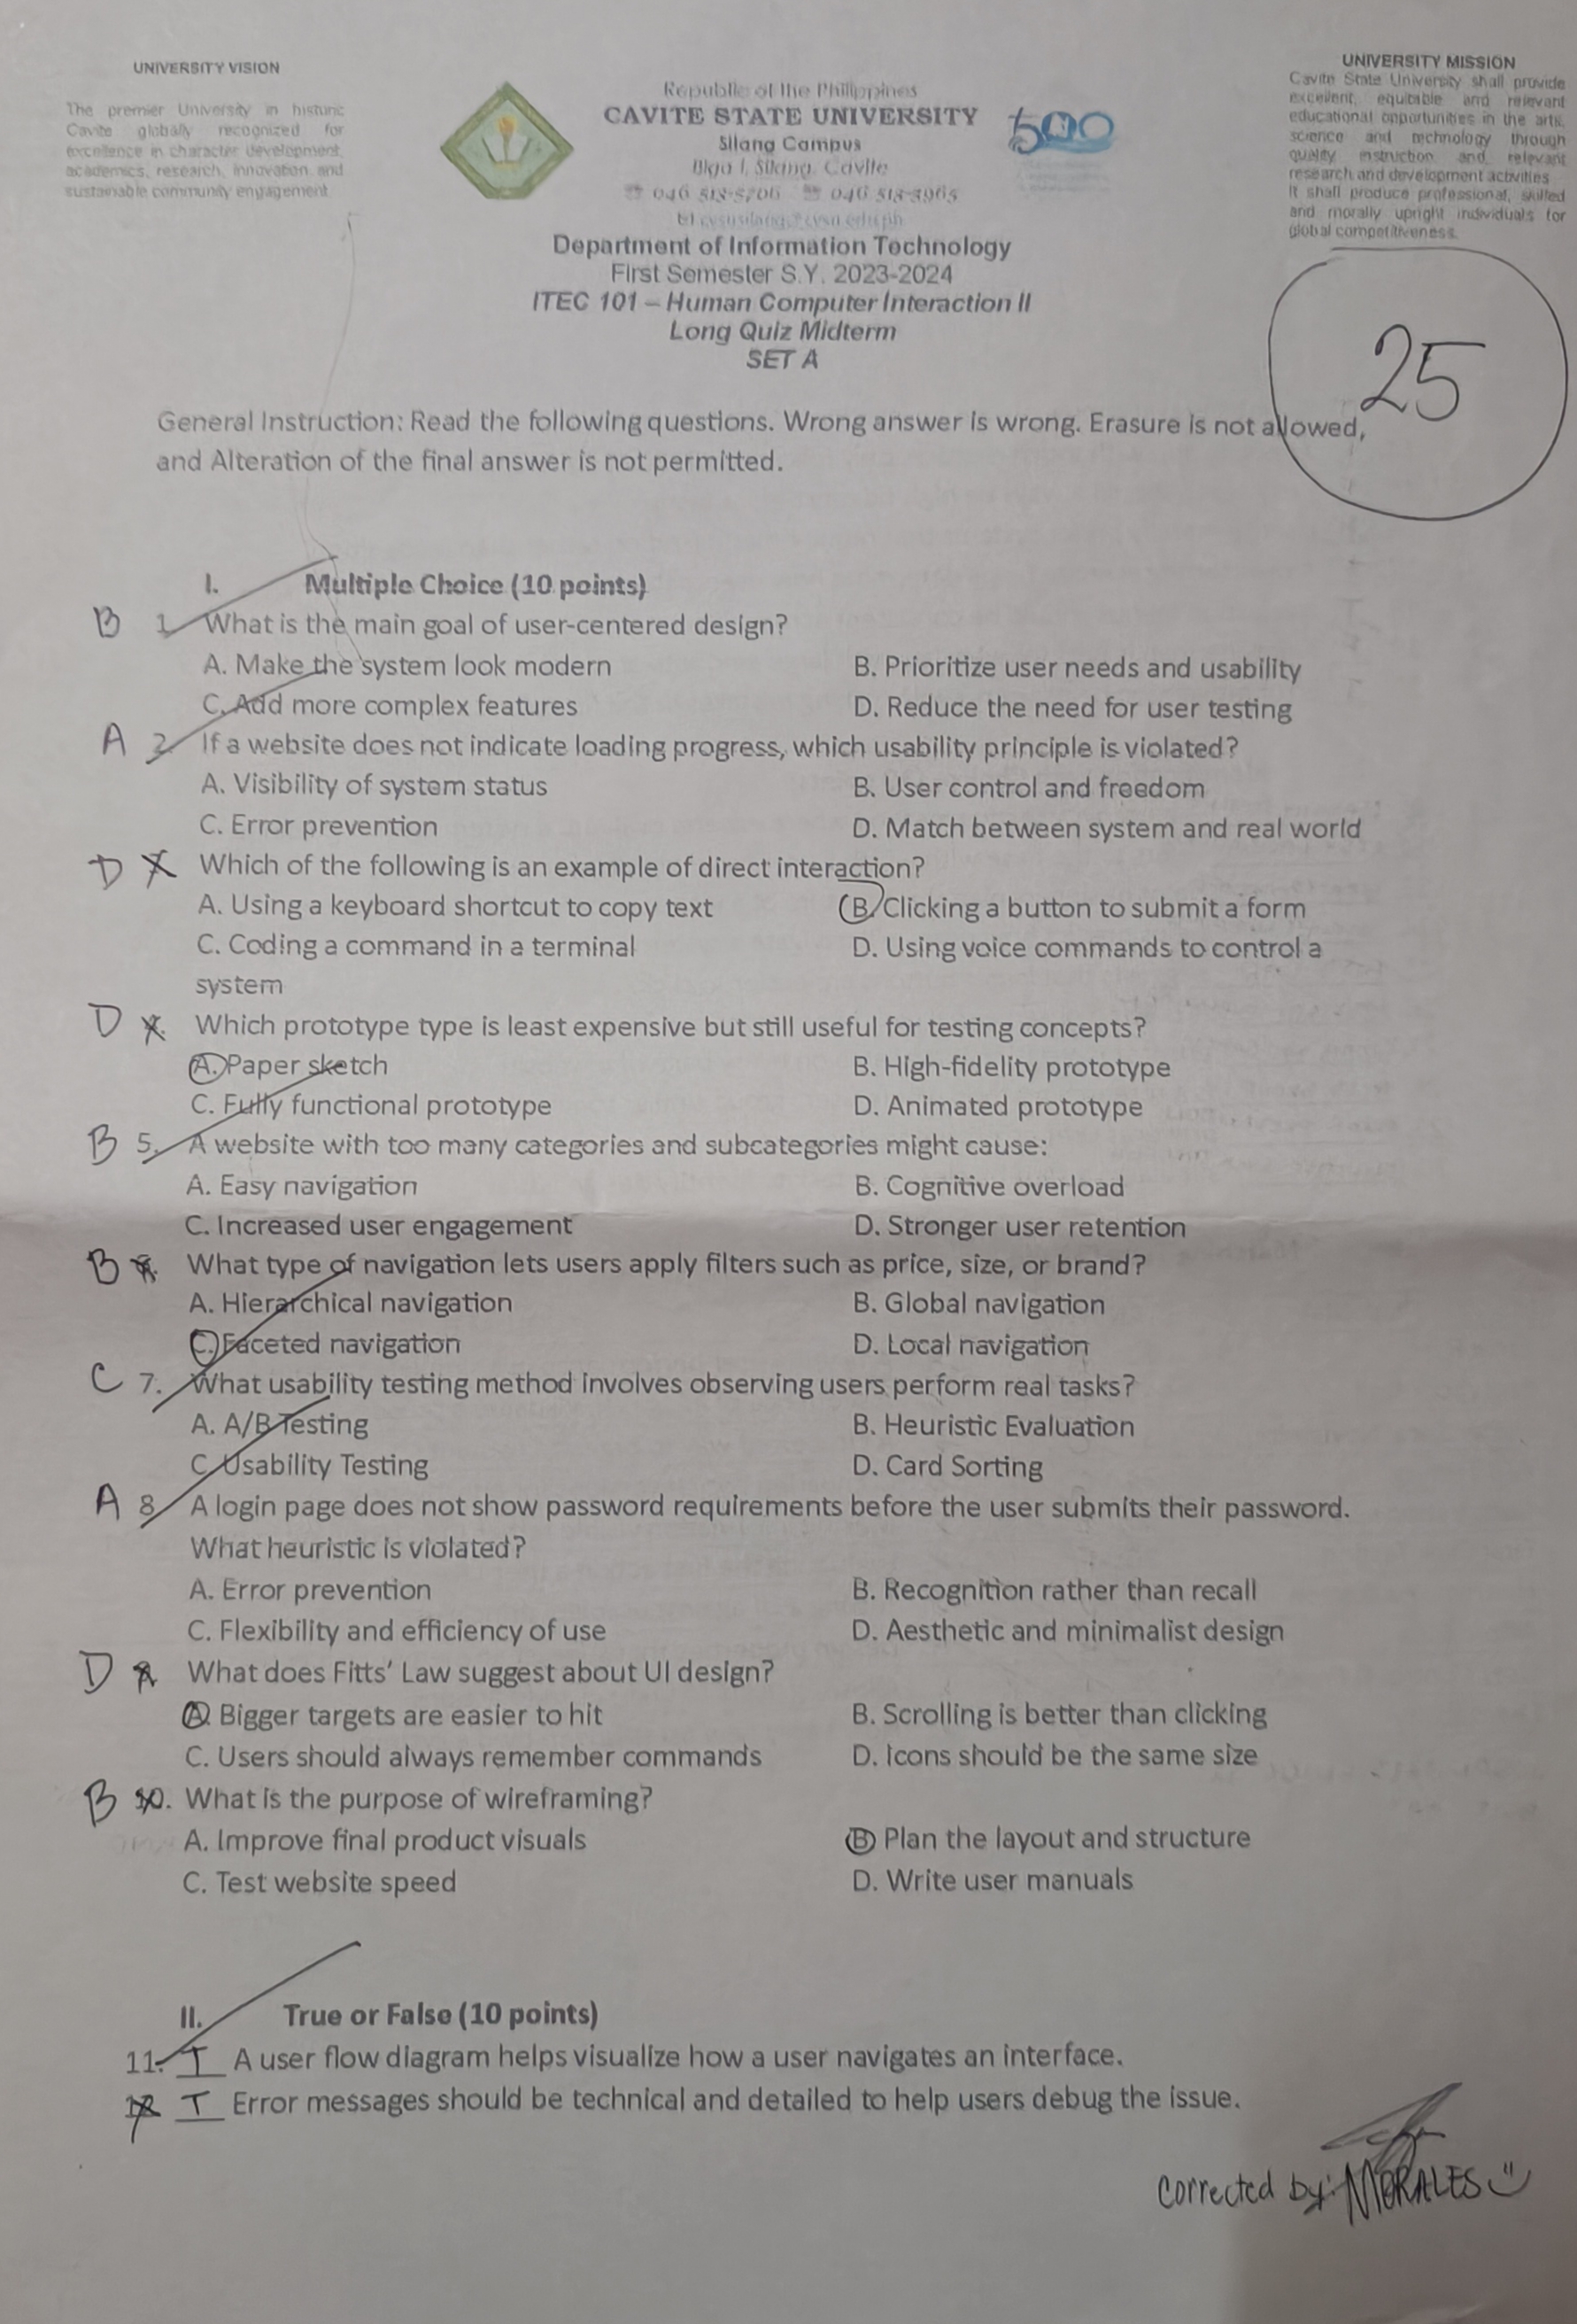 UNIVERSITY VISION
The premier University in historic
Cavite globally recognized for
excellence in character development,
academics, research, innovation and
sustainable community engagement
Republic of the Philippines
CAVITE STATE UNIVERSITY
Silang Campus
Biga I, Silang, Cavite
046 513-3965
Department of Information Technology
First Semester S.Y. 2023-2024
ITEC 101 – Human Computer Interaction II
Long Quiz Midterm
SET A
500
UNIVERSITY MISSION
Cavite State University shall provide
excellent, equitable and relevant
educational opportunities in the arts,
science and technology through
quality instruction and relevant
research and development activities
It shall produce professional, skilled
and morally upright individuals for
global competitiveness.
25
General Instruction: Read the following questions. Wrong answer is wrong. Erasure is not allowed,
and Alteration of the final answer is not permitted.
I. Multiple Choice (10 points)
B 1. What is the main goal of user-centered design?
A. Make the system look modern B. Prioritize user needs and usability
C. Add more complex features D. Reduce the need for user testing
A 2. If a website does not indicate loading progress, which usability principle is violated?
A. Visibility of system status B. User control and freedom
C. Error prevention D. Match between system and real world
D Which of the following is an example of direct interaction?
A. Using a keyboard shortcut to copy text B. Clicking a button to submit a form
C. Coding a command in a terminal D. Using voice commands to control a
system
D Which prototype type is least expensive but still useful for testing concepts?
A. Paper sketch B. High-fidelity prototype
C. Fully functional prototype D. Animated prototype
B 5. A website with too many categories and subcategories might cause:
A. Easy navigation B. Cognitive overload
C. Increased user engagement D. Stronger user retention
B What type of navigation lets users apply filters such as price, size, or brand?
A. Hierarchical navigation B. Global navigation
C. Faceted navigation D. Local navigation
C 7. What usability testing method involves observing users perform real tasks?
A. A/B Testing B. Heuristic Evaluation
C. Usability Testing D. Card Sorting
A 8. A login page does not show password requirements before the user submits their password.
What heuristic is violated?
A. Error prevention B. Recognition rather than recall
C. Flexibility and efficiency of use D. Aesthetic and minimalist design
D What does Fitts’ Law suggest about UI design?
A. Bigger targets are easier to hit B. Scrolling is better than clicking
C. Users should always remember commands D. Icons should be the same size
B 10. What is the purpose of wireframing?
A. Improve final product visuals B Plan the layout and structure
C. Test website speed D. Write user manuals
II. True or False (10 points)
11. T A user flow diagram helps visualize how a user navigates an interface.
12 T Error messages should be technical and detailed to help users debug the issue.
corrected by: MORALES